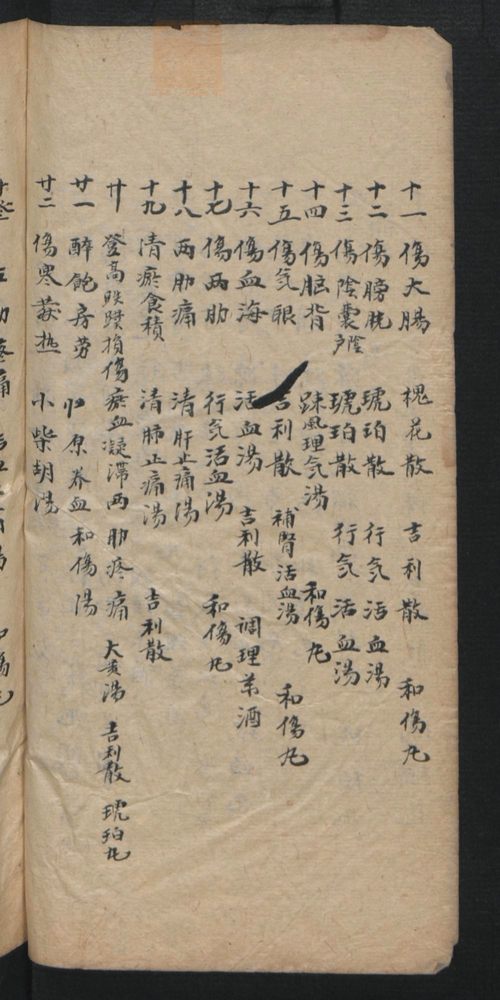 十一 傷大腸 槐花散 吉利散 和傷丸
十二 傷膀胱 琥珀散 行気活血湯
十三 傷陰囊陰户 琥珀散 行気活血湯
十四 傷脏背 踈風理気湯 和傷丸
十五 傷気眼 吉利散 補腎活血湯 和傷丸
十六 傷血海 活血湯 吉利散 调理药酒
十七 傷两肋 行気活血湯 和傷丸
十八 两肋痛 清肝止痛湯
十九 清瘀食積 清肺止痛湯 吉利散
廿 登高跌蹼損傷瘀血凝滯两肋疼痛 大黄湯 吉利散 琥珀丸
廿一 醉飽房劳 归原养血和傷湯
廿二 傷寒發热 小柴胡湯